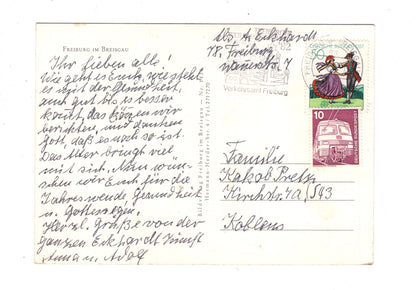 FREIBURG IM BREISGAU
Ihr lieben alle!
Wie geht es Euch, wie steht
es mit der Gesundheit,
auch gut bis es besser
könnt, das können wir
berichten, und danken
Gott, daß es noch so ist.
Das Alter bringt viel
mit sich. Nun wün-
schen wir Euch für die
Jahreswende Gesundheit
u. Gottessegen.
Herzl. Grüße von der
ganzen Eckhardt Zunft
Anna u. Adolf
Abs. A. Eckhardt
78. Freiburg
7
Verkehrsamt Freiburg
10
Familie
Jakob Pretzer
Kirchstr. 9a/543
Koblenz